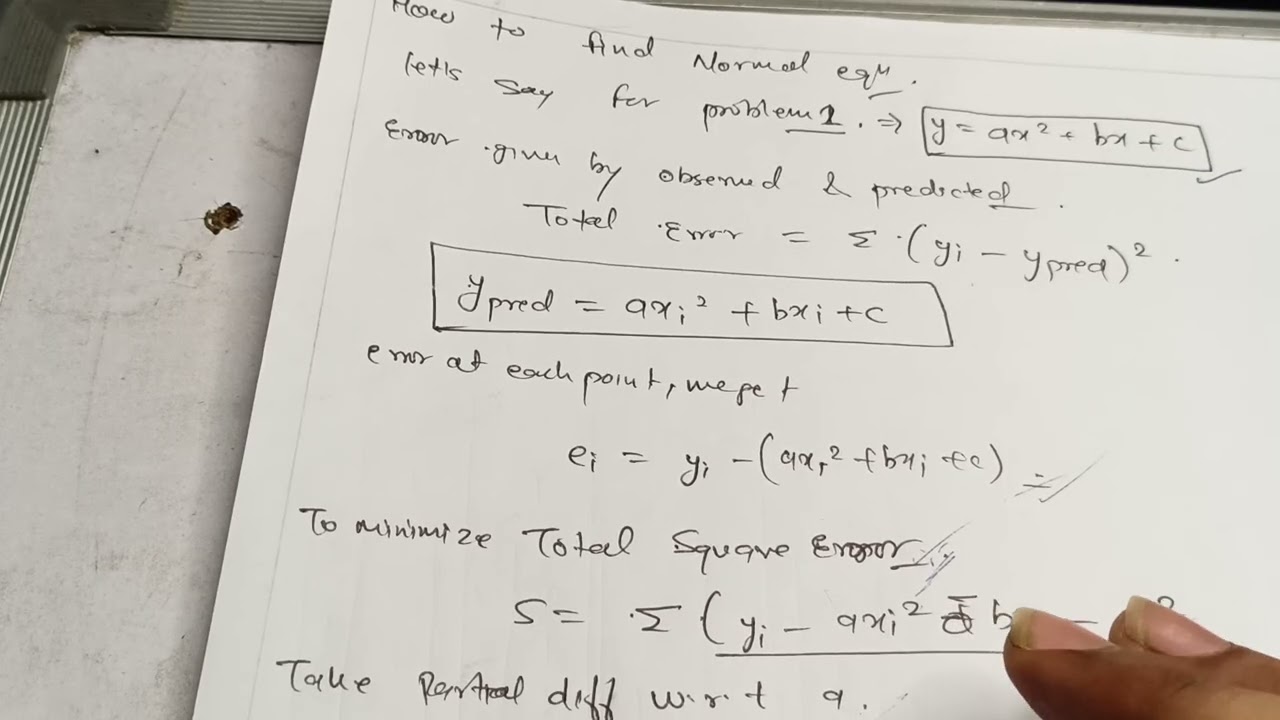 How to find Normal eqⁿ.
let's say for problem 1. ⇒ y = ax² + bx + c
Error given by observed & predicted.
Total Error = Σ (yi − ypred)².
ypred = axi² + bxi + c
error at each point, we get
ei = yi − (axi² + bxi + c)
To minimize Total Square Error
S = Σ (yi − axi² − b
Take Partial diff w.r.t a.